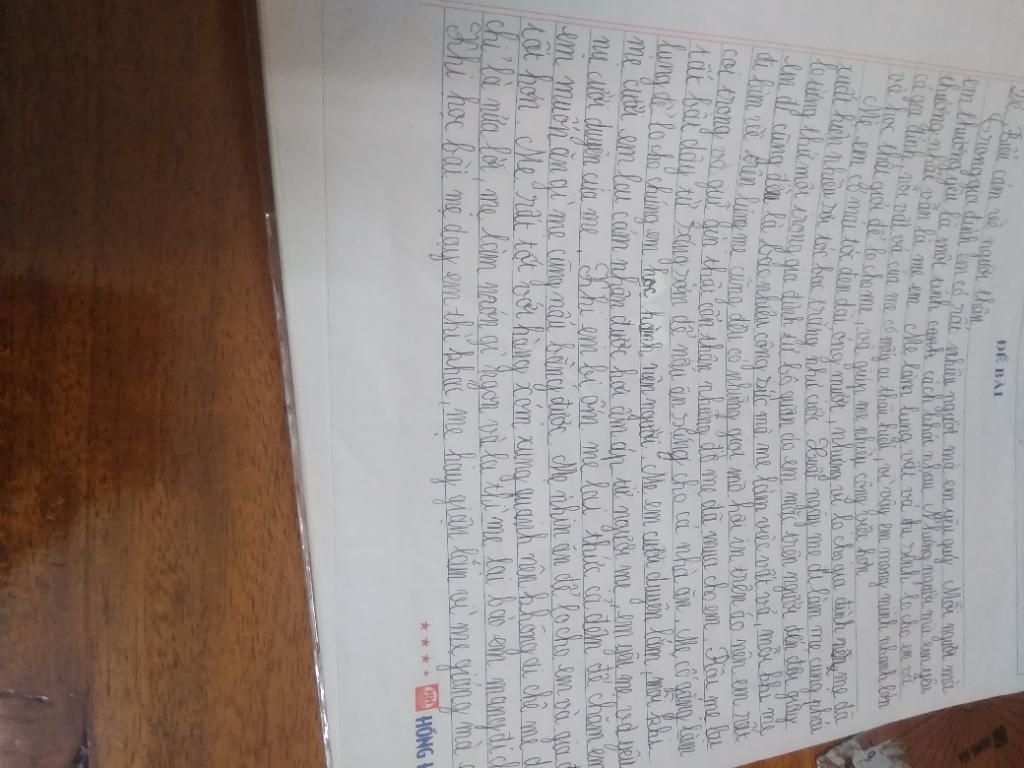 ĐỀ BÀI
Đề: Biểu cảm về người thân.
Trong gia đình em có rất nhiều người mà em yêu quý. Mỗi người mà
em thương đều là một tính cách khác nhau. Nhưng người mà em yêu
thương nhất vẫn là mẹ em. Mẹ làm lụng vất vả hi sinh lo cho em và
cả gia đình, nỗi vất vả của mẹ ai thấu hết, vì vậy em mong mình nhanh lớn
và học thật giỏi để lo cho mẹ, và giúp mẹ nhiều công việc hơn.
Mẹ em có mái tóc đen dài óng mượt, nhưng vì lo cho gia đình nên mẹ đã
xuất hiện nhiều sợi tóc bạc trắng như cước. Cuối ngày mẹ đi làm mẹ cũng phải
lo từng thứ một trong gia đình từ bộ quần áo em mặc trên người đến đôi giày
em đi cũng đều là bao nhiêu công sức mà mẹ làm việc vất vả, mỗi khi mẹ
đi làm về trên lưng mẹ cũng đều có những giọt mồ hôi in trên áo nên em rất
coi trọng và giữ gìn thật cẩn thận những đồ mẹ đã mua cho em. Rồi mẹ lại
tất bật dậy từ sáng sớm để nấu ăn sáng cho cả nhà ăn. Mẹ cố gắng làm
lụng để lo cho chúng em học hành, nên người. Mẹ em cười duyên lắm, mỗi khi
mẹ cười em lại cảm nhận được hơi ấm áp từ người mẹ, em yêu mẹ và yêu
nụ cười duyên của mẹ. Khi em bị ốm mẹ lại thức cả đêm để chăm em
em muốn ăn gì mẹ cũng nấu bằng được. Mẹ nhịn ăn để lo cho em và gia đ
tốt hơn. Mẹ rất tốt với hàng xóm xung quanh nên không ai chê mẹ d
chỉ là nửa lời, mẹ làm món gì ngon và lạ thì mẹ lại bảo em mang đi c
Khi học bài mẹ dạy em thì thôi, mẹ hay giận lắm vì mẹ giảng mà
HỒNG